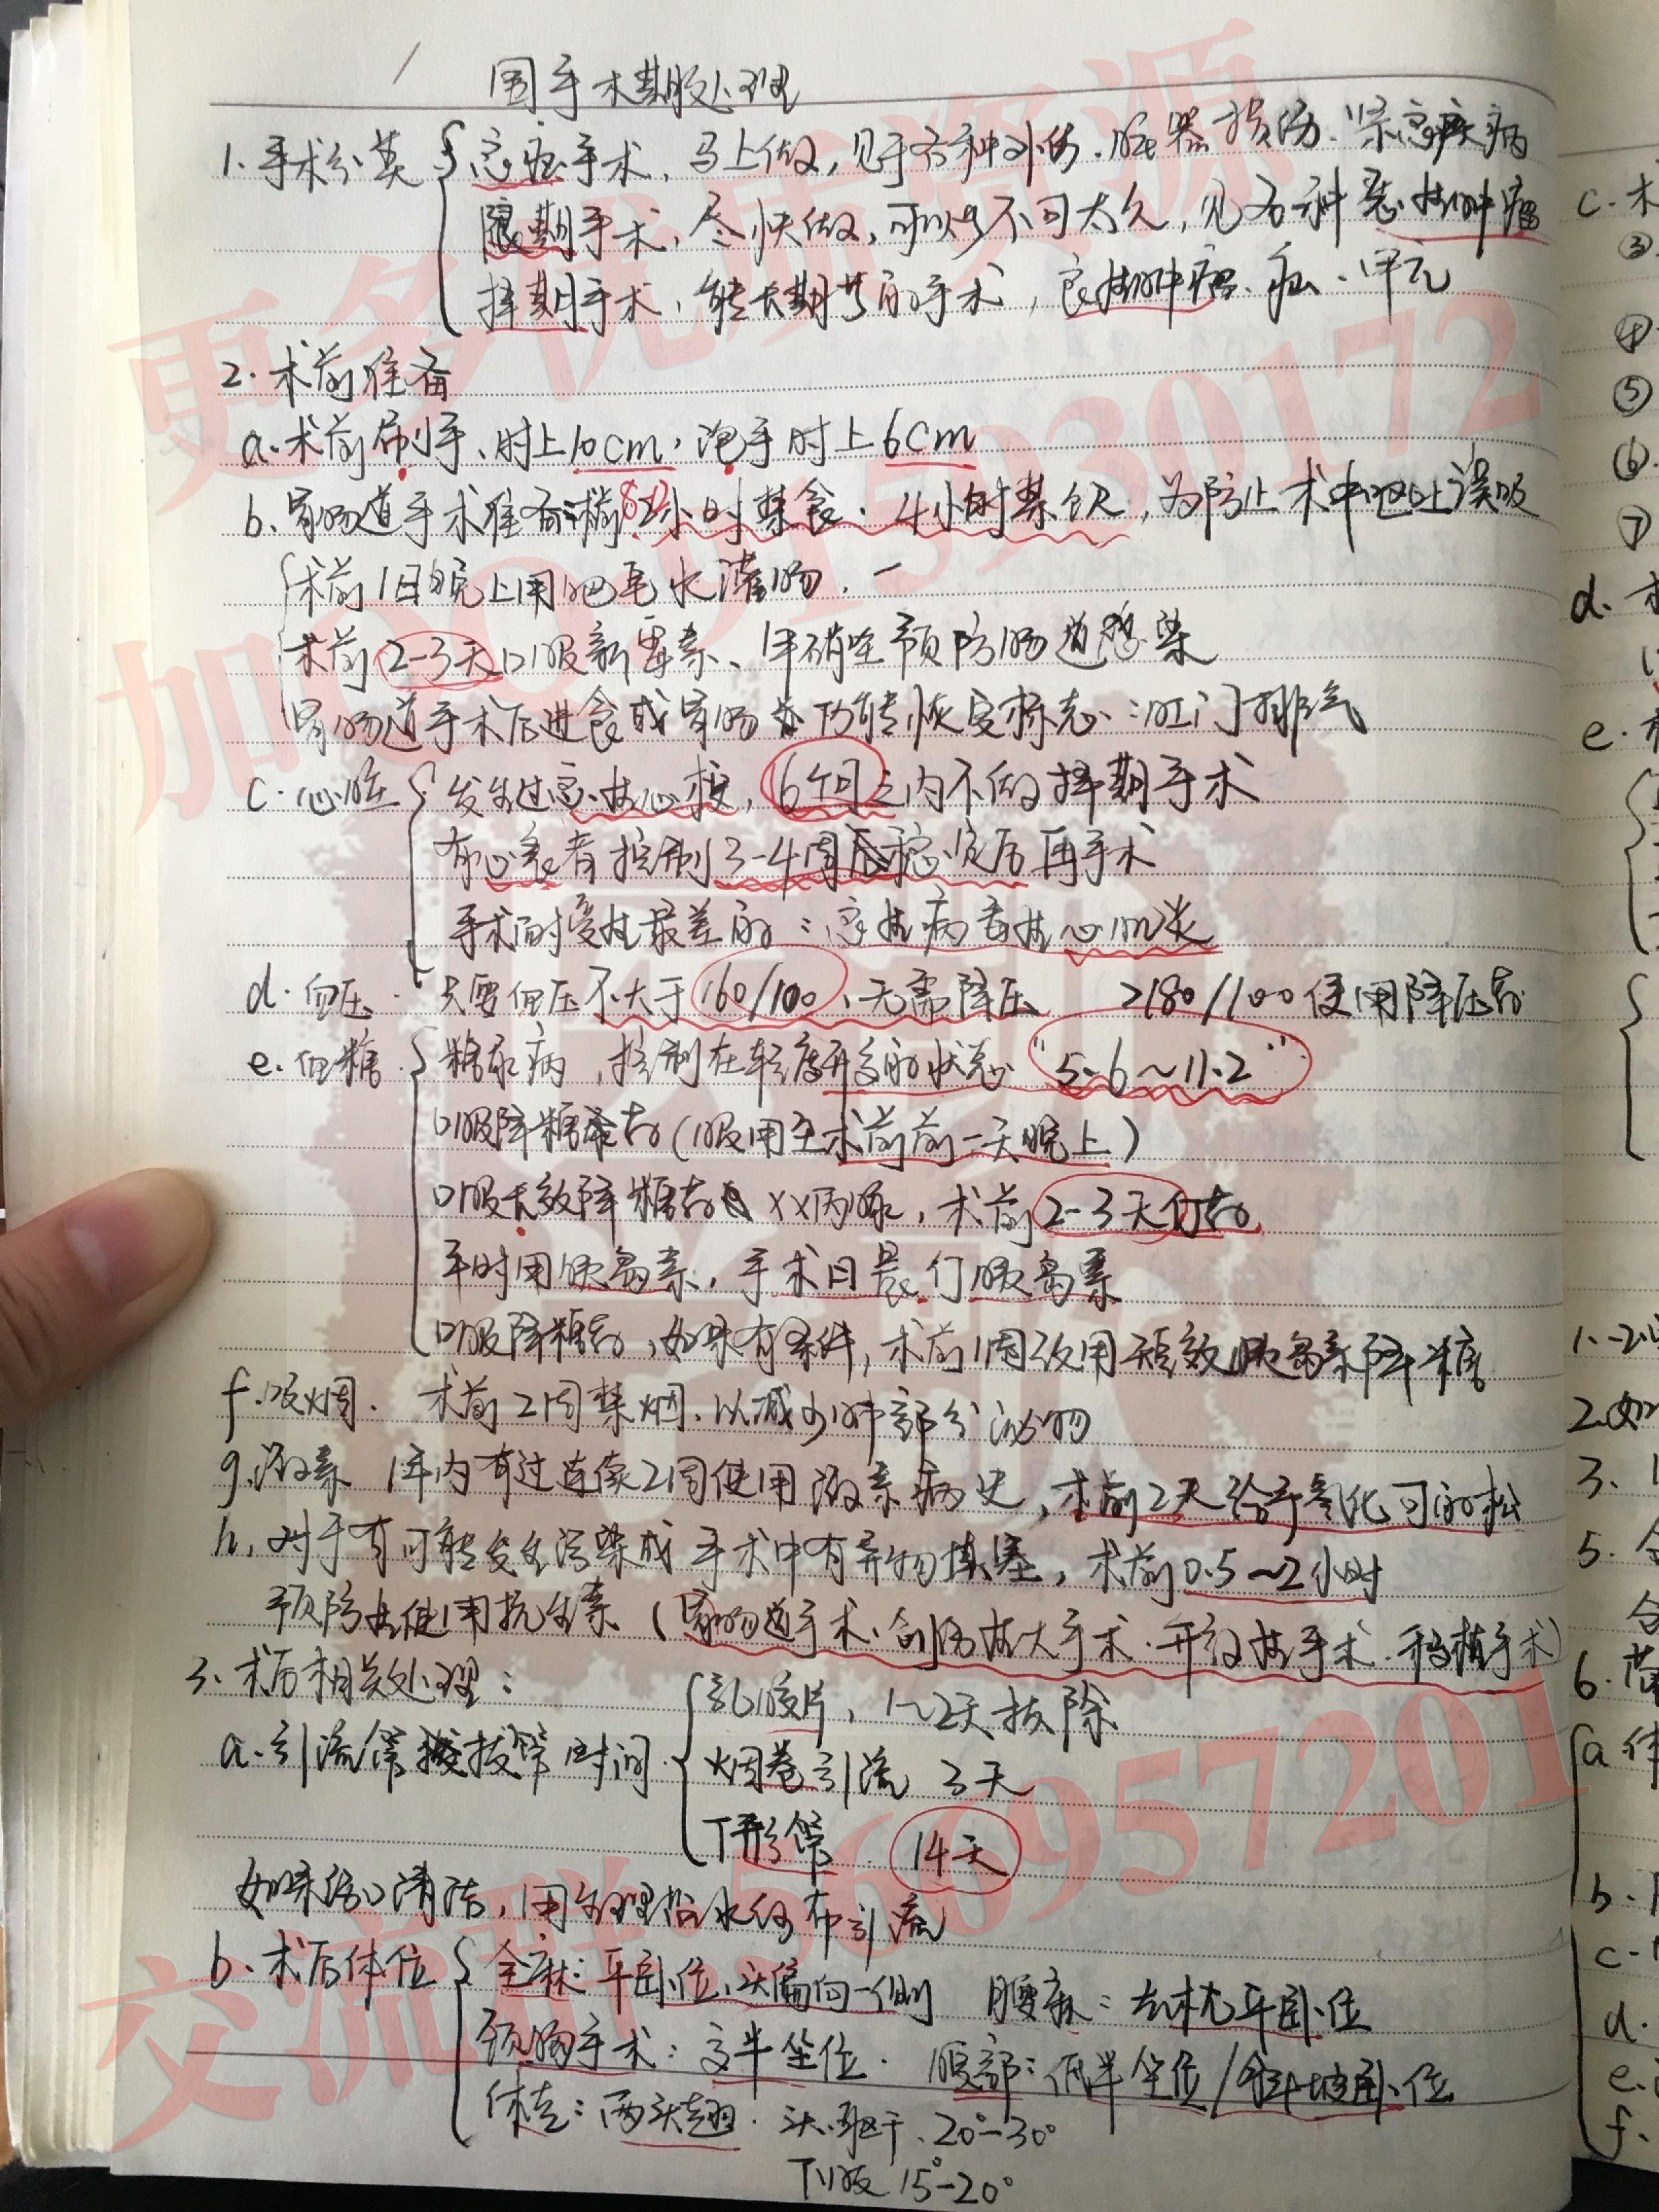 围手术期处理
1.手术分类 急症手术,马上做,见于各种外伤.脏器损伤.紧急疾病
限期手术,尽快做,可以等不可太久,见各种恶性肿瘤
择期手术,能长期等的手术,良性肿瘤.疝.甲亢
2.术前准备
a.术前刷手、肘上10cm,泡手肘上6cm
b.胃肠道手术准备 术前8-12小时禁食.4小时禁饮,为防止术中呕吐误吸
术前1日晚上用肥皂水灌肠.
术前2-3天口服新霉素、甲硝唑预防肠道感染
胃肠道手术后进食或胃肠功能恢复标志:肛门排气
c.心脏 发生过急性心梗,6个月之内不做择期手术
有心衰者控制3-4周后稳定后再手术
手术耐受性最差的:急性病毒性心肌炎
d.血压. 只要血压不大于160/100、无需降压 >180/100使用降压药
e.血糖. 糖尿病,控制在轻度升高的状态"5.6~11.2"
口服降糖药(服用至术前前一天晚上)
口服长效降糖药 XX丙脲,术前2-3天停药.
平时用胰岛素,手术日晨停胰岛素
口服降糖药,如果有条件,术前1周改用短效胰岛素降糖
f.吸烟. 术前2周禁烟.以减少肺部分泌物
g.激素 1年内有过连续2周使用激素病史,术前2天给予氢化可的松
h.对于有可能发生污染或手术中有异物填塞,术前0.5~2小时
预防性使用抗生素(胃肠道手术.创伤性大手术.开放性手术.移植手术)
3.术后相关处理:
a.引流管拔管时间 乳胶片,1~2天拔除
烟卷引流 3天
T形管 14天
如果伤口清洁,用生理盐水纱布引流
b.术后体位 全麻:平卧位、头偏向一侧 腰麻:去枕平卧位
颈胸手术:高半坐位. 腹部:低半坐位/斜坡卧位
休克:两头翘.头.躯干.20°-30°
下肢15°-20°
c.术
③
④
⑤
⑥.
⑦
d.
e.
1.
2.如
3.
5.
6.
a体
b.
c.
d.
e.
f.
更多优质资源
加QQ
交流群:560957201